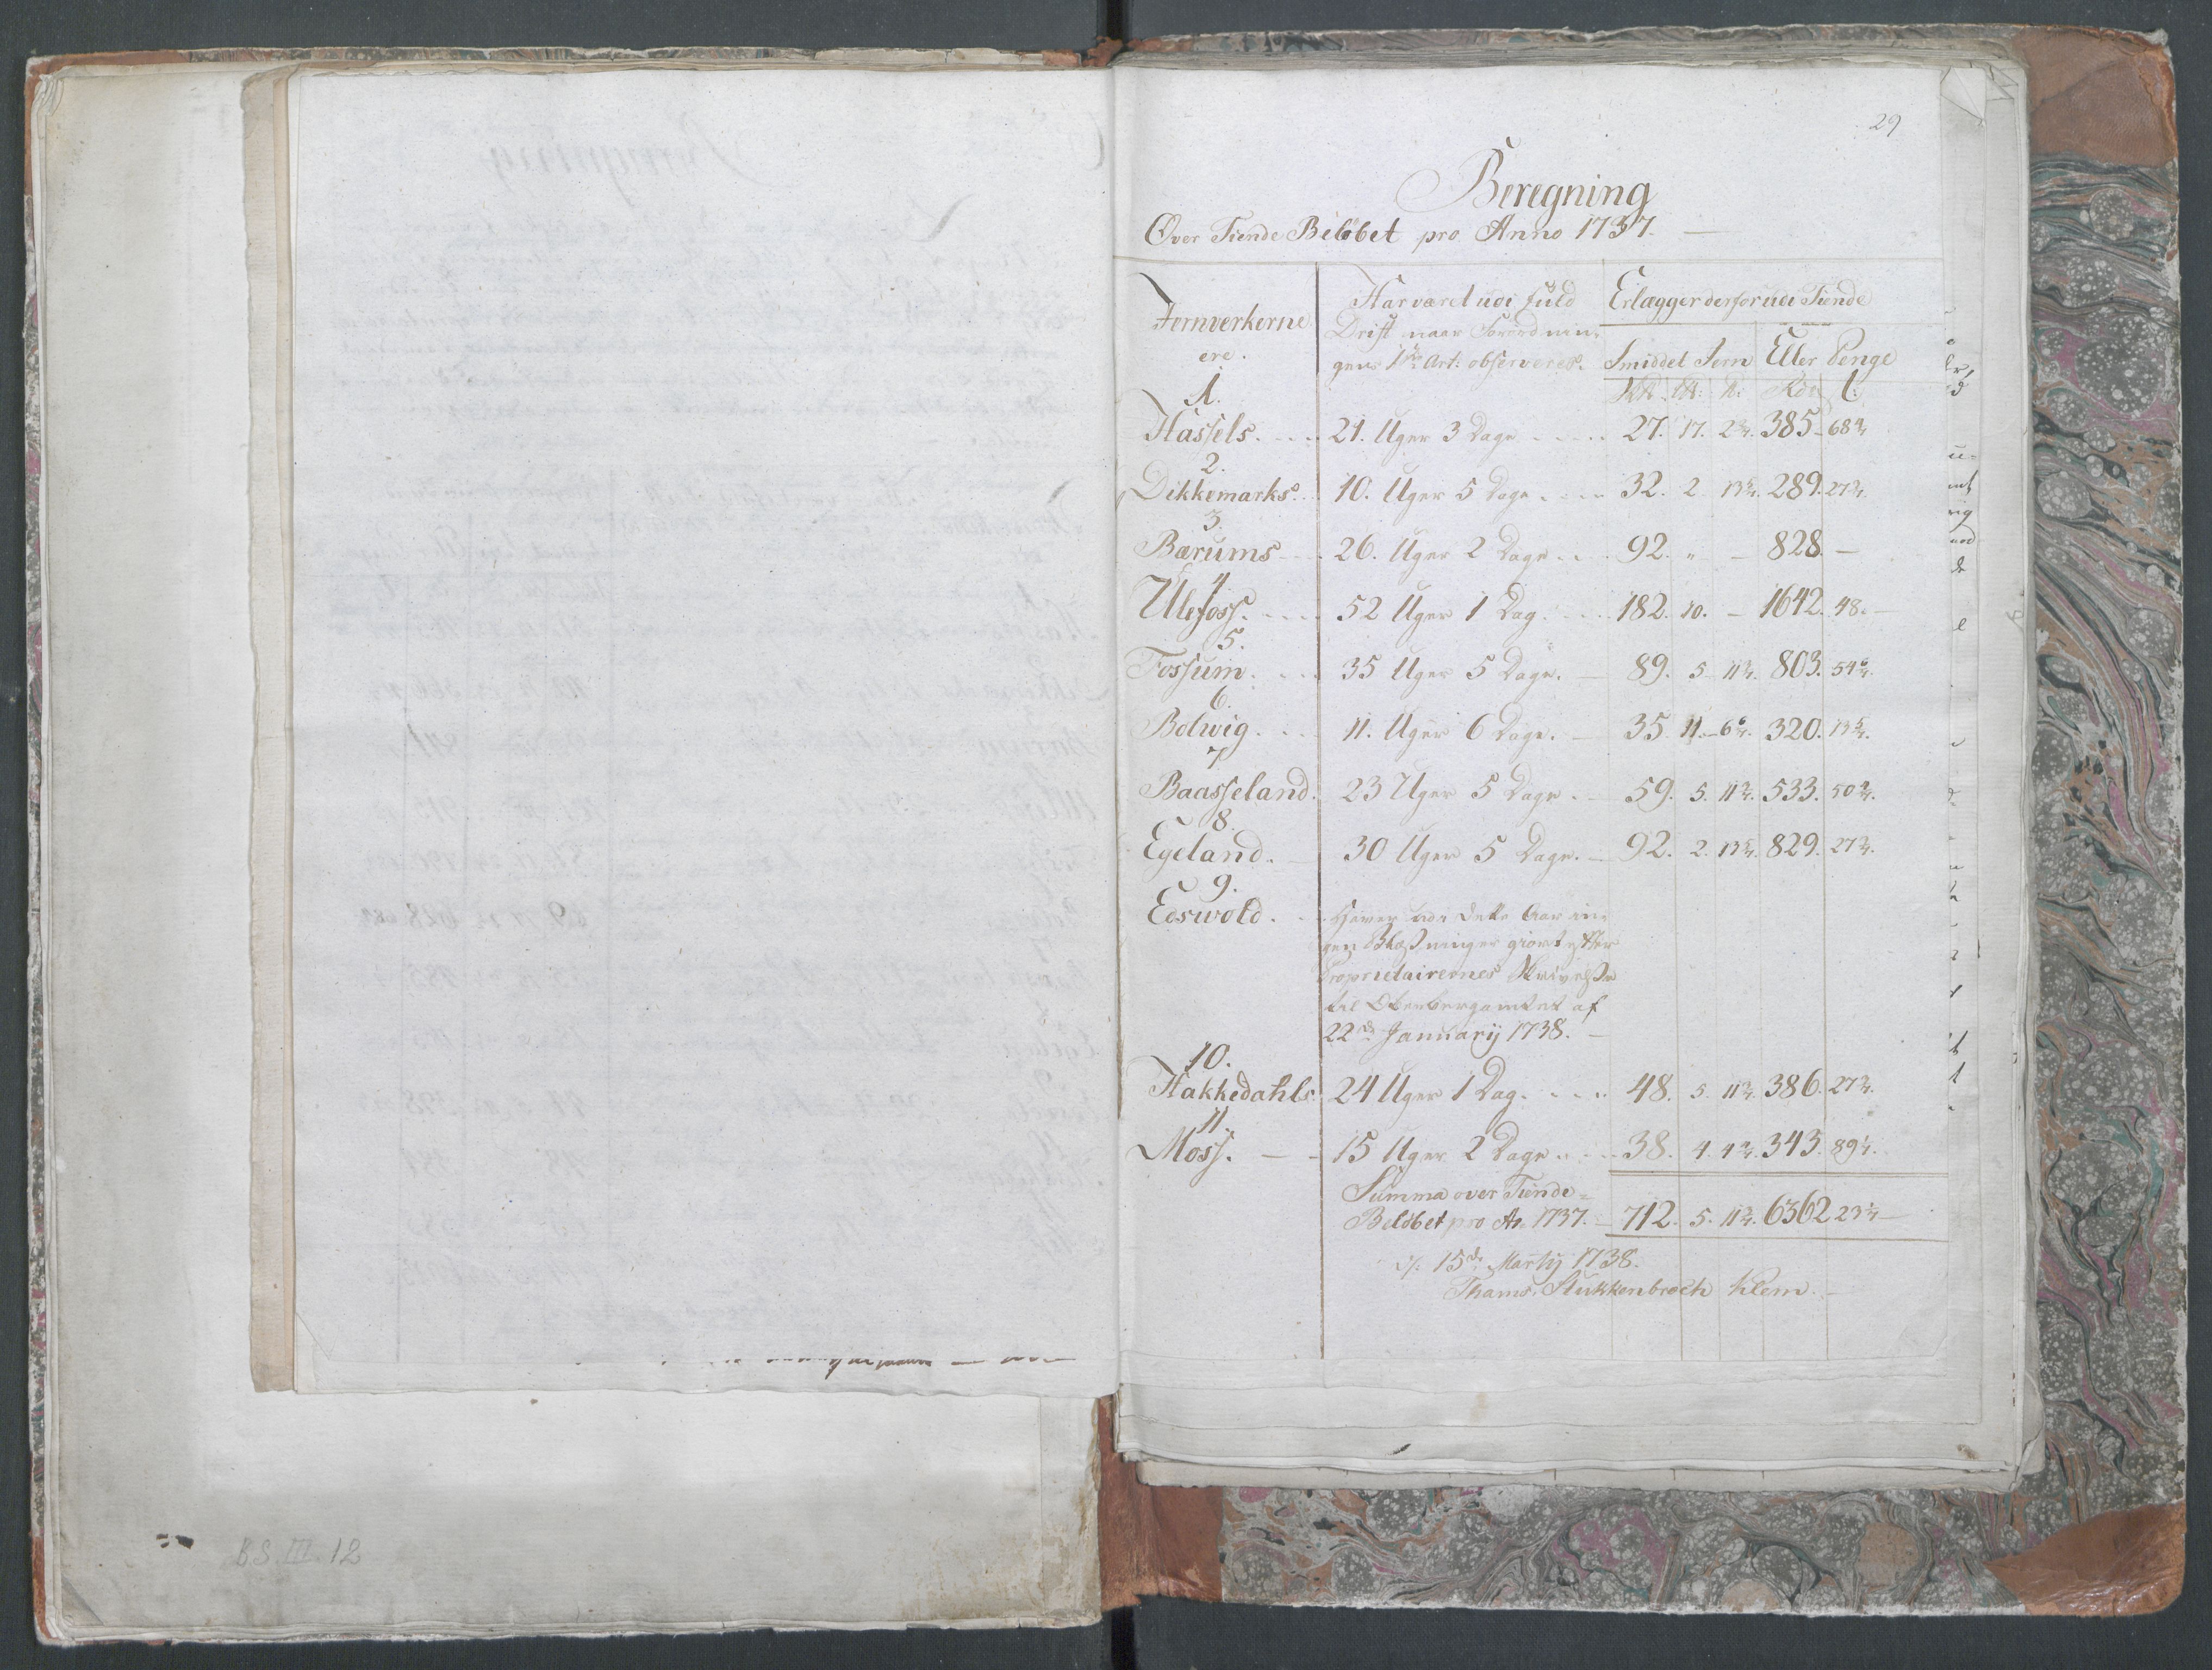 29
Beregning
Over Tiende Beløbet pro Anno 1737. —
Jernverkerne ere.
Har været udi fuld
Drift naar Forordnin-
gens 1ste Art: observeres.
Erlægger derfor udi Tiende
Smiddet Jern Eller Penge
1.
Hassels. 21. Uger 3 Dage 27. 17. 2 2/7. 385. 68 4/7
2.
Dikkemarks. 10. Uger 5 Dage 32. 2. 13 5/7. 289. 27 3/7.
3.
Bærums 26. Uger 2 Dage 92. " — 828. —
4
Ulefoss. 52 Uger 1 Dag. 182. 10. — 1642. 48. —
5.
Fossum. 35 Uger 5 Dage. 89. 5. 11 3/7. 803. 54 6/7.
6.
Bolwig. 11. Uger 6 Dage. 35. 11. 6 6/7. 320. 13 5/7.
7
Baasseland. 23 Uger 5 Dage. 59. 5. 11 3/7. 533. 50 2/7.
8.
Egeland. 30 Uger 5 Dage. 92. 2. 13 5/7. 829. 27 3/7.
9.
Edswold. Haver udi dette Aar in-
gen Blæsninger giort efter
Proprietairernes Skrivelse
til Oberbergamtet af
22de January 1738. —
10.
Hakkedahls. 24 Uger 1 Dag. 48. 5. 11 3/7. 386. 27 3/7.
11.
Moss. — 15 Uger 2 Dage 38. 4. 4 4/7. 343. 89 1/7.
Summa over Tiende-
Beløbet pro Ao 1737. 712. 5. 11 3/7. 6362 23 1/7 —
15de Martij 1738.
Thams. Stukkenbroch Klem. —
BS. III. 12